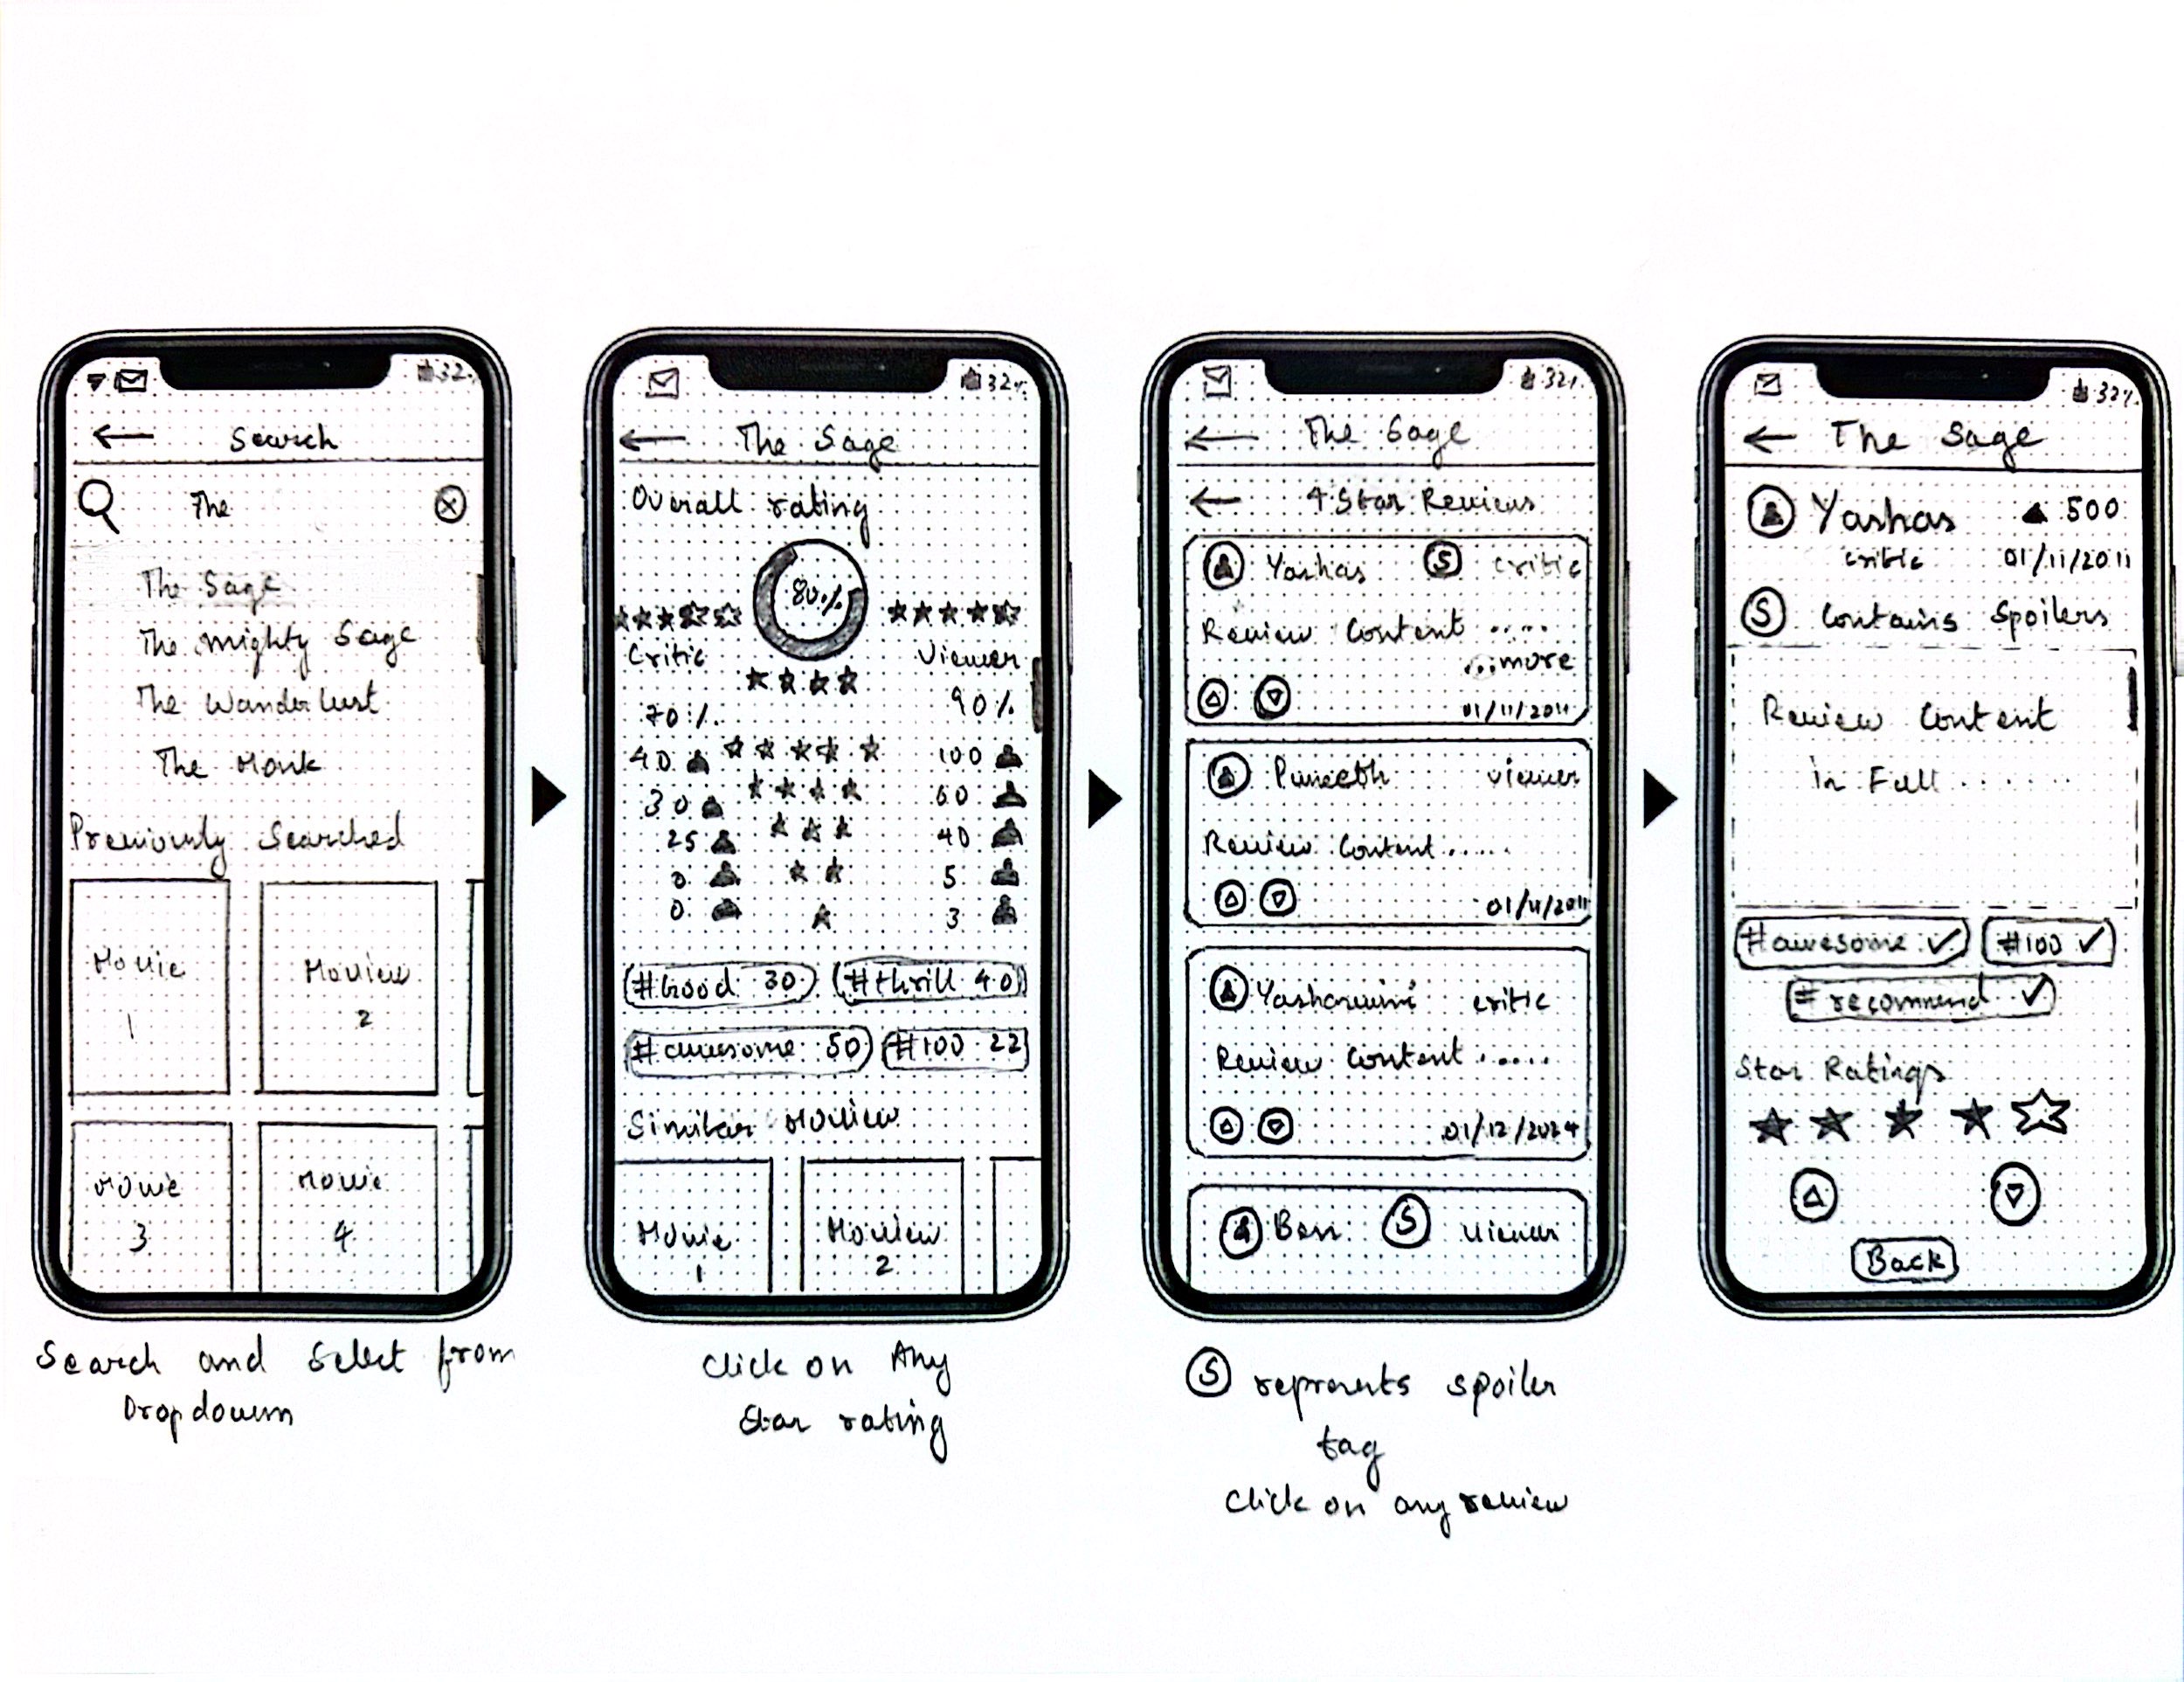 32%
Search
The
The Sage
The Mighty Sage
The Wanderlust
The Monk
Previously Searched
Movie 1
Movie 2
Movie 3
Movie 4
Search and Select from
Dropdown
32%
The Sage
Overall rating
80%
Critic
Viewer
70%
90%
40
100
30
60
25
40
0
5
0
3
#Good 30
#thrill 40
#awesome 50
#100 22
Similar Movies
Movie 1
Movie 2
Click on Any
Star rating
32%
The Sage
4 Star Reviews
Yashas S critic
Review Content ....
...more
01/11/2011
Puneeth viewer
Review Content.....
01/11/2011
Yashaswini critic
Review Content .....
01/12/2024
Ben S viewer
S represents spoiler
tag
Click on any review
32%
The Sage
Yashas 500
critic 01/11/2011
S Contains Spoilers
Review Content
in Full .....
#awesome ✓
#100 ✓
#recommend ✓
Star Ratings
Back